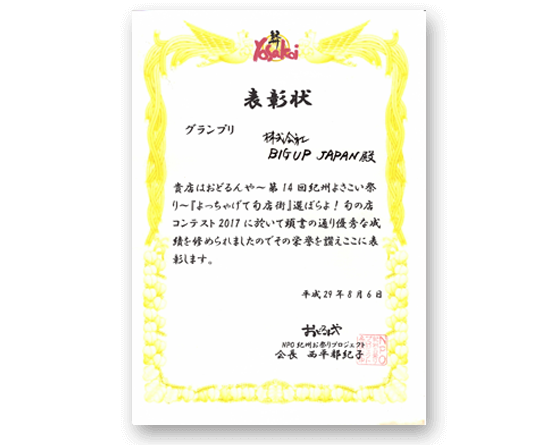 Yosakoi
表彰状
グランプリ
株式会社
BIG UP JAPAN 殿
貴店はおどるんや～第14回紀州よさこい祭
り～『よっちゃげて旬店街』選ばらよ！旬の店
コンテスト2017に於いて頭書の通り優秀な成
績を修められましたのでその栄誉を讃えここに表
彰します。
平成29年8月6日
おどるんや
NPO紀州お祭りプロジェクト
会長 西平都紀子